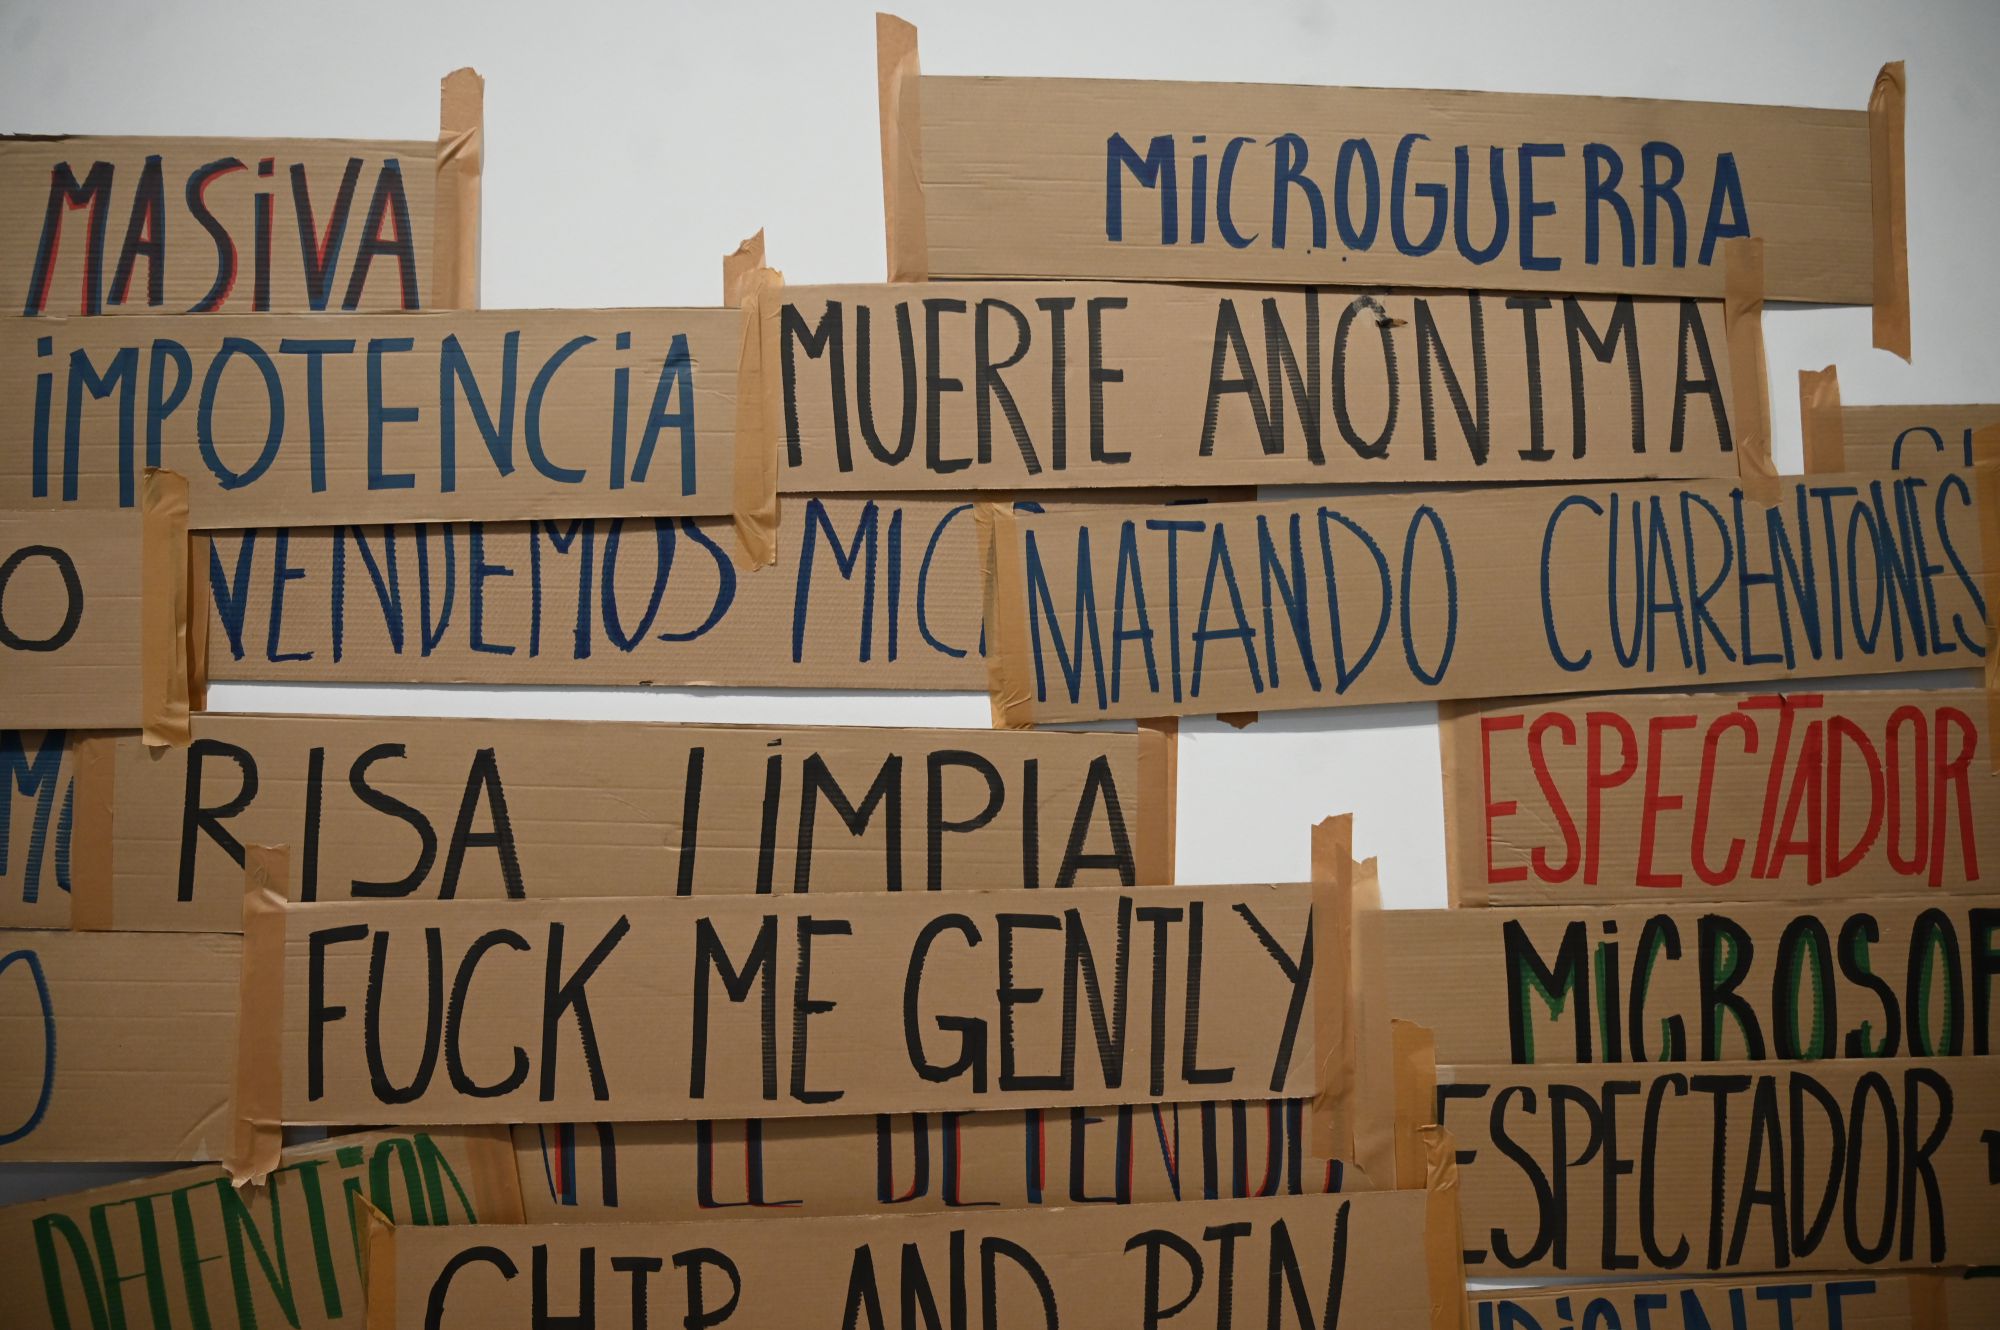 MASIVA
MICROGUERRA
IMPOTENCIA
MUERTE ANONIMA
O
VENDEMOS
MATANDO CUARENTONES
RISA LIMPIA
ESPECTADOR
FUCK ME GENTLY
MICROSOF
ESPECTADOR
DETENTION
CHIP AND PIN